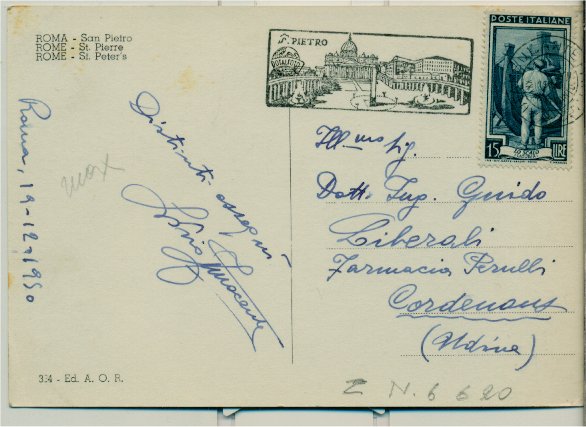 ROMA - San Pietro
ROME - St. Pierre
ROME - St. Peter's
S. PIETRO
POSTE ITALIANE
15 LIRE
Roma, 19-12-1950
max
Distinti ossequi
Innocente
Ill.mo Sig.
Dott. Ing. Guido
Liberali
Farmacia Perulli
Cordenons
(Udine)
334 - Ed. A. O. R.
N. 6 620